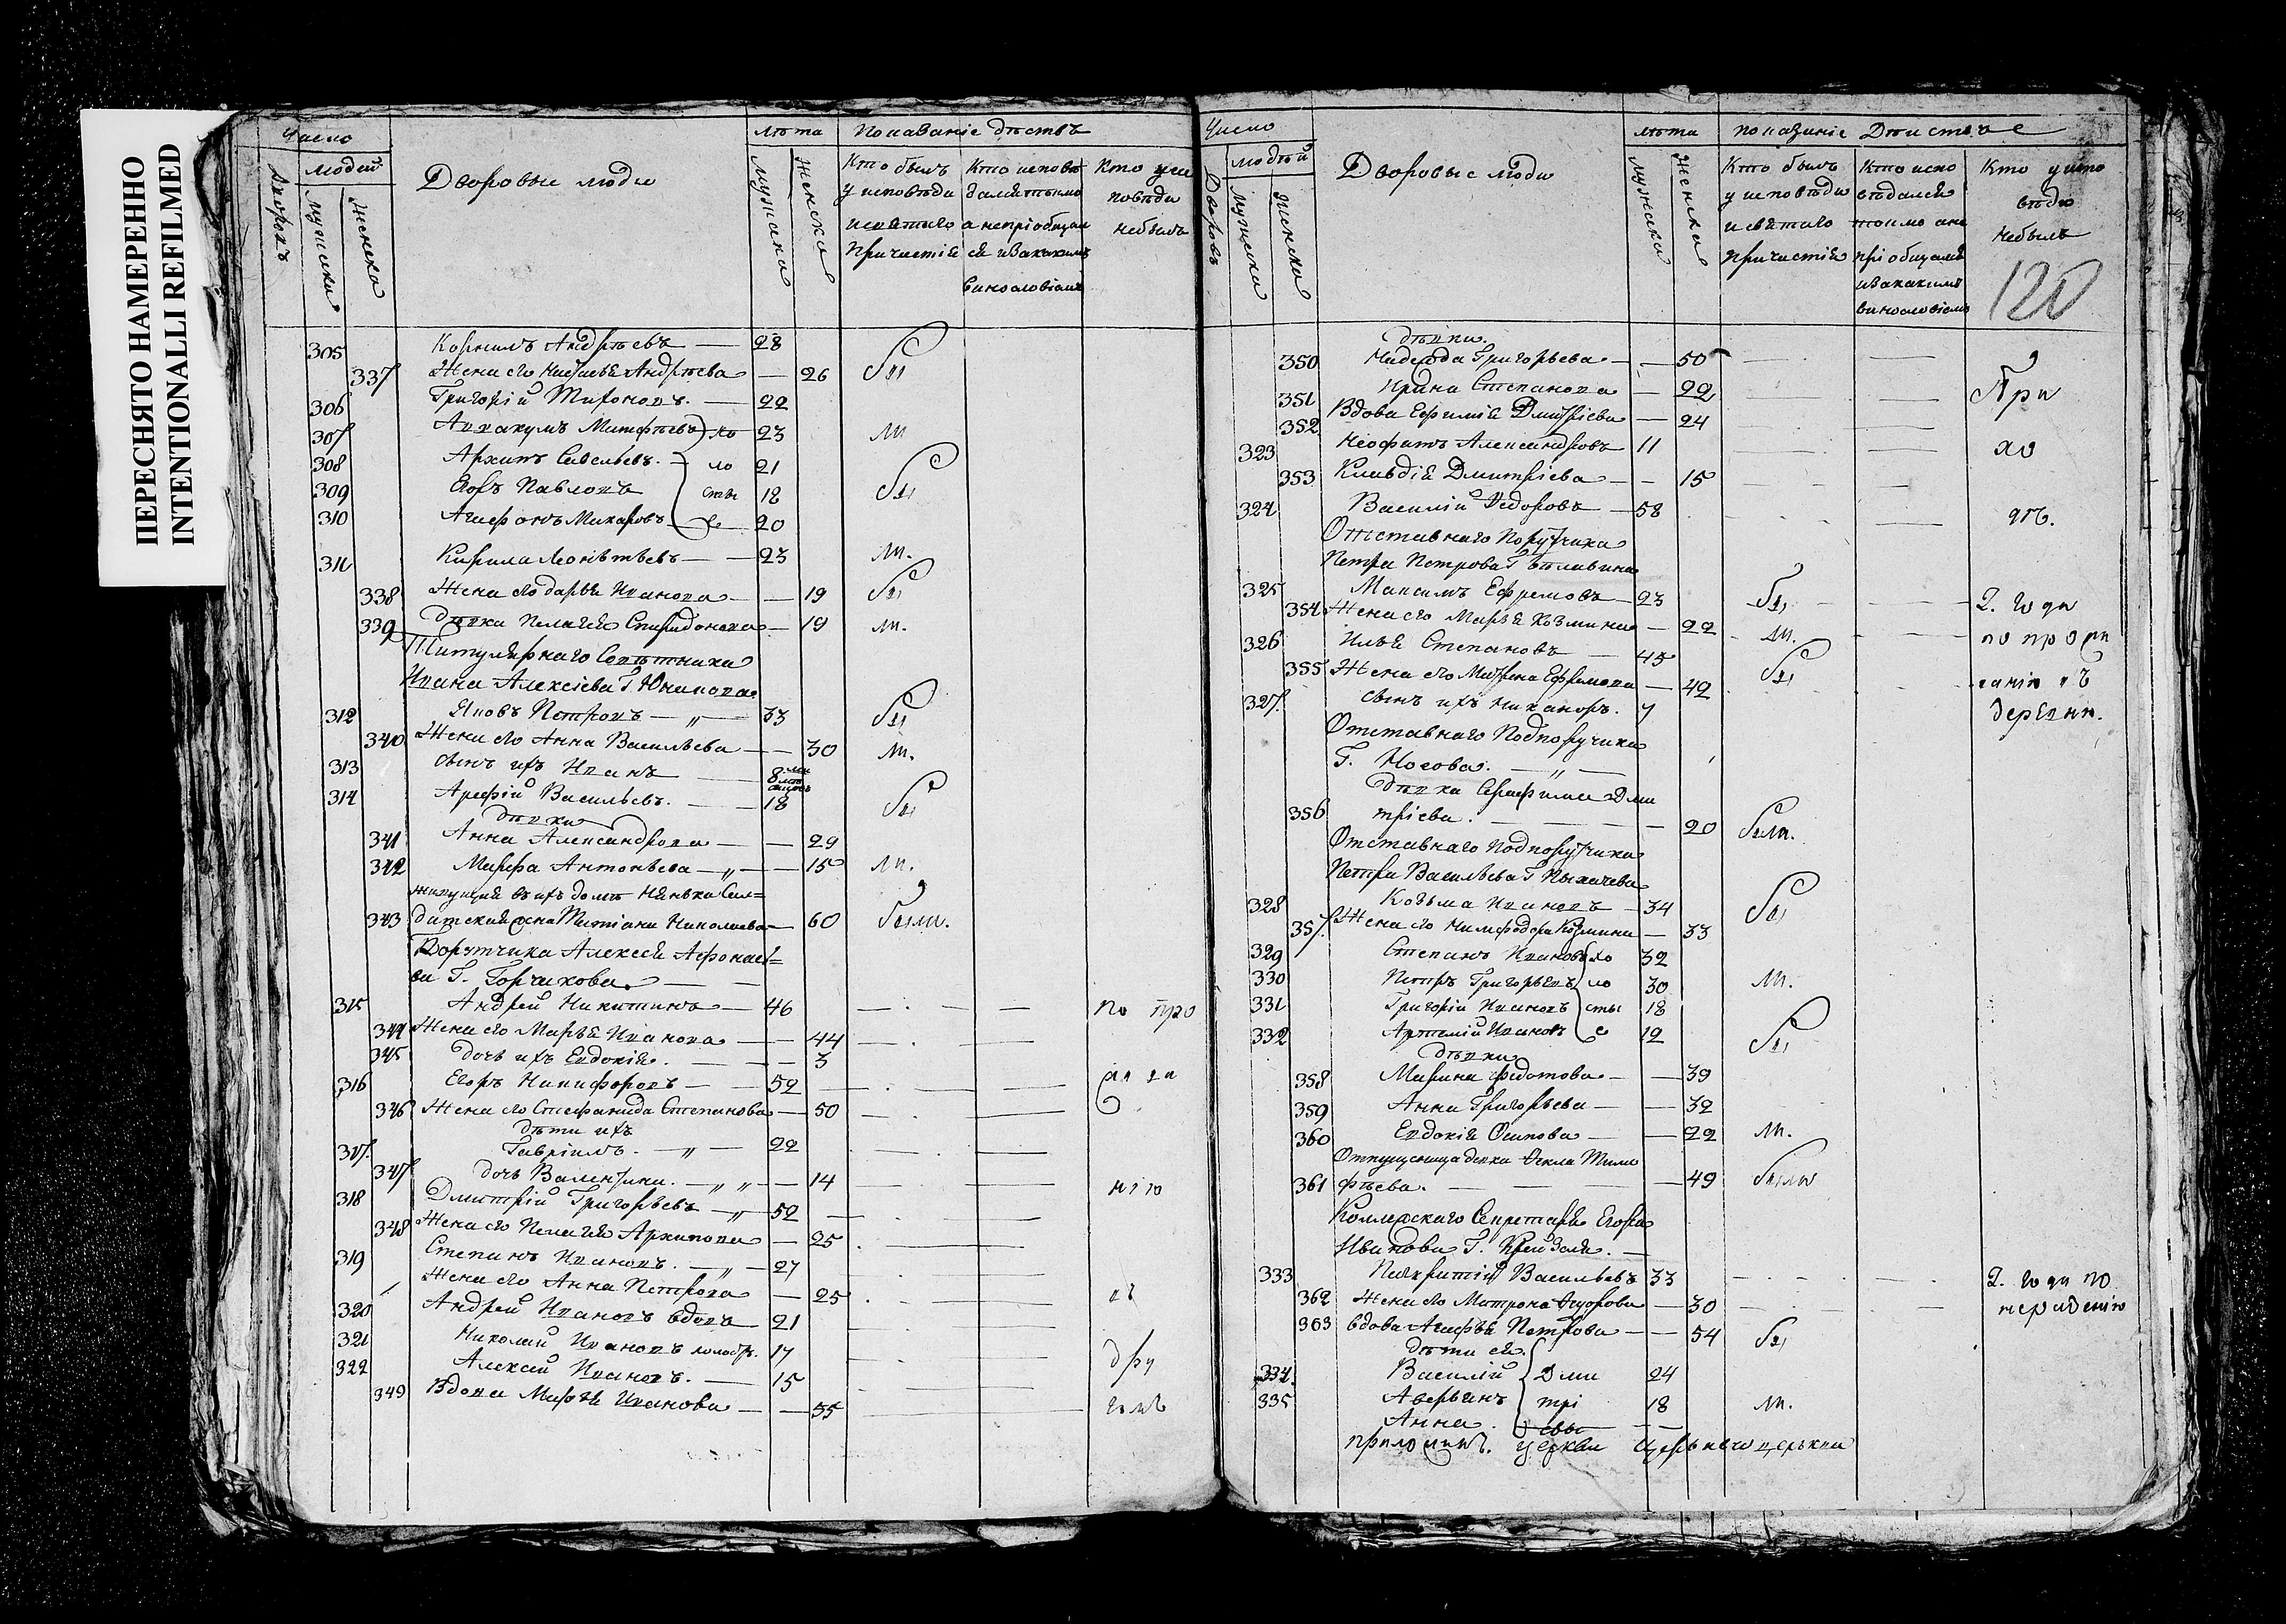 ПЕРЕСНЯТО НАМЕРЕННО
INTENTIONALLI REFILMED
Число
Людей
Дворовъ
мужска
женска
Дворовые люди
лѣта
Мужска
Женска
Показаніе дѣствъ
Кто былъ у исповѣди и святаго причастія
Кто исповѣдался тькмо а непріобщался и за какимъ винословіемъ
Кто у исповѣди небылъ
305 Корнилъ Андрѣевъ — 28 Бы
337 Жена его Наталья Андрѣева — 26
306 Григорій Тихоновъ. — 22
307 Аввакумъ Матфѣевъ хо 23 ли
308 Архипъ Савельевъ. ло 21
309 Егоръ Павловъ сты 18 Бы
310 Агафонъ Макаровъ е 20
311 Кирила Леонтьевъ — 23 ли.
338 Жена его дарья Иванова — 19 Бы
339 Дѣвка Пелагея Спиридонова — 19 ли.
Титулярнаго Советника
Ивана Алексѣева Г. Юнакова.
312 Яковъ Петровъ — „ — 33 Бы
340 Жена его Анна Васильева — 30 ли.
313 сынъ ихъ Иванъ — 8
314 Арефій Васильевъ. — 18 Бы
дѣвки
341 Анна Александрова — 29
342 Марфа Антоньева — „ — 15 ли.
живущая въ ихъ домѣ Нянька Сол=
343 датская жена Татіана Николаева — 60 были.
Порутчика Алексея Афонась=
ва Г. Горчакова. — —
315 Андрей Никитинъ — 46 по про
344 Жена его Марья Иванова — 44
345 дочь ихъ Евдокія. — 3
316 Егоръ Никифоровъ — 52
346 Жена его Стефанида Степанова — 50
дѣти ихъ
317. Гавріилъ. — „ — 22
347 дочь Валентина. — „ „ — 14
318 Дмитрій Григорьевъ — „ 52 нію
348 Жена его Пелагея Архипова — 25
319 Степанъ Ивановъ. — „ — 27
Жена его Анна Петрова — 25 въ
320 Андрей Ивановъ вдовъ 21
321 Николай Ивановъ холостъ. 17 дру
322 Алексей Ивановъ. — 15
349 Вдова Марья Иванова — 35 гомъ
Число
людей
Дворовъ
Мужска
женска
Дворовые люди
лѣта
Мужска
Женска
показаніе Дѣиствъ
Кто былъ у исповѣди и святаго причастія
Кто исповѣдался токмо а непріобщался и за какимъ винословіемъ
Кто у исповѣди небылъ
120
дѣвки.
350 Надежда Григорьева. — 50
351 Ирина Степанова — 22 При
352 Вдова Ефимія Дмитріева — 24
323 Неофитъ Александровъ 11 хо
353 Клавдія Дмитріева — 15
324 Василій Федоровъ — 58 дѣ.
Отставнаго Порутчика
Петра Петрова Г.
325 Максимъ Ефремовъ — 23 Бы 2. года
354 Жена его Марья Козмина — 22 ли. по про
326 Илья Степановъ — 45
355 Жена его Матрена Ефремова — 42 Бы
327. сынъ ихъ Никаноръ. 7 деревни.
Отставнаго Подпоручика
Г. Носова. — „ —
дѣвка Серафима Дми
356 тріева. — 20 были.
Отставнаго Подпорутчика
Петра Васильева Г. Пыхачева
328 Козьма Ивановъ — 34 Бы
357. Жена его Нимфодора Козмина — 33
329 Степанъ Ивановъ хо 32
330 Петръ Григорьевъ ло 30 ли.
331 Григорій Ивановъ сты 18
332 Артемій Ивановъ е 12 Бы
дѣвки
358 Марина Федотова — 39
359 Анна Григорьева — 32
360 Евдокія Осипова — 22 ли.
Отпущеница девка Фекла Тимо
361 фѣева. — 49 были
Коллежскаго Секретаря Егора
Иванова Г.
333 Панкратій Васильевъ 33 2. года по
362 Жена его Матрона Федорова — 30 нерадению
363 вдова Агафья Петрова — 54 Бы
дѣти ея.
334. Василій Дми 24
335 Аверьянъ трі 18 ли.
Анна евы —
церкви